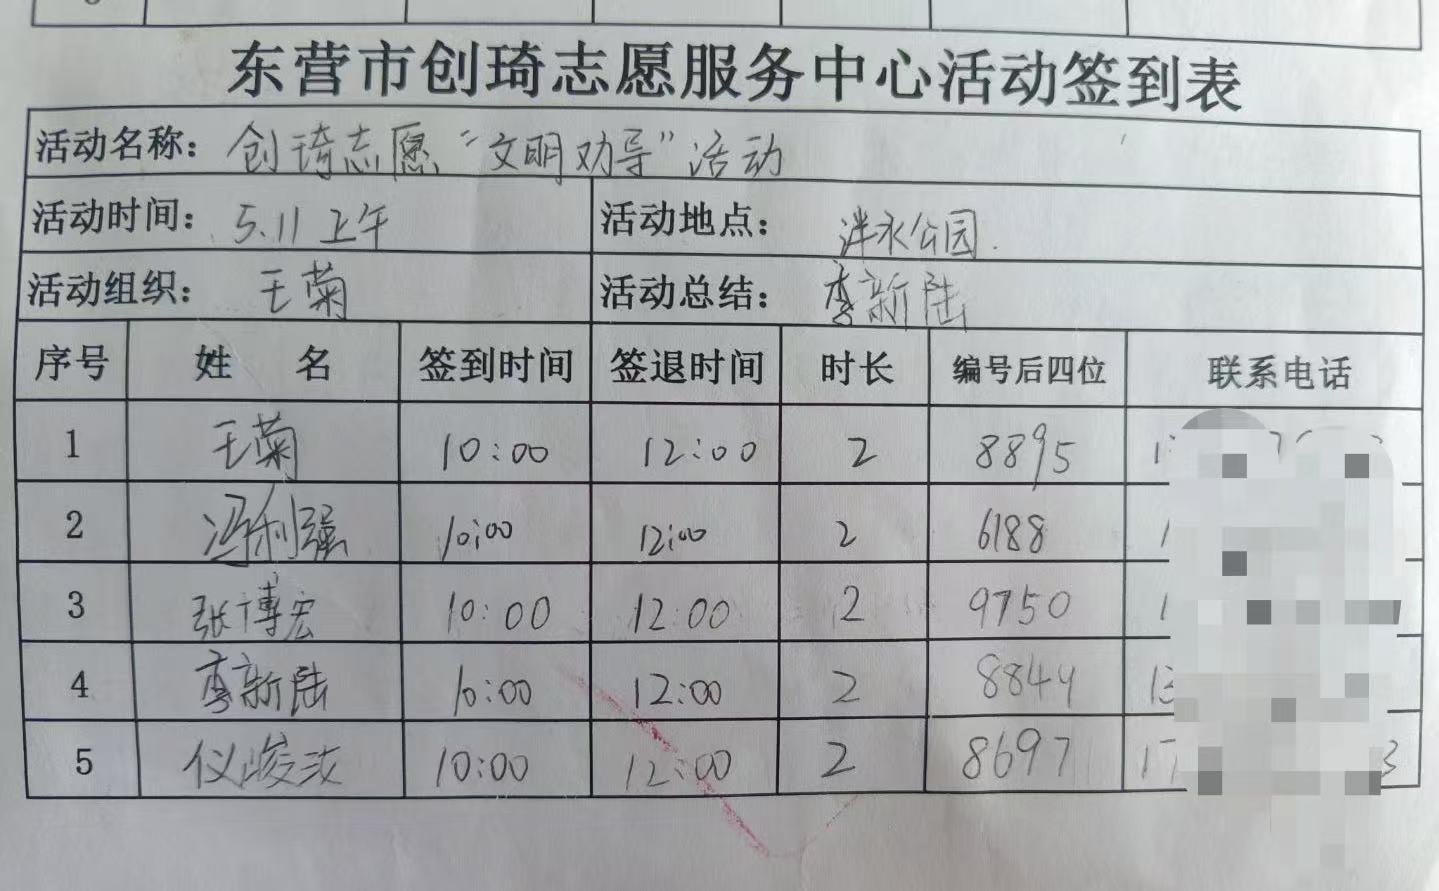 东营市创琦志愿服务中心活动签到表
活动名称：创琦志愿“文明劝导”活动
活动时间：5.11 上午 活动地点：泮水公园.
活动组织：王菊 活动总结：李新陆
序号 姓 名 签到时间 签退时间 时长 编号后四位 联系电话
1 王菊 10:00 12:00 2 8895
2 冯利强 10:00 12:00 2 6188
3 张博宏 10:00 12:00 2 9750
4 李新陆 10:00 12:00 2 8849
5 仪峻汝 10:00 12:00 2 8697 17